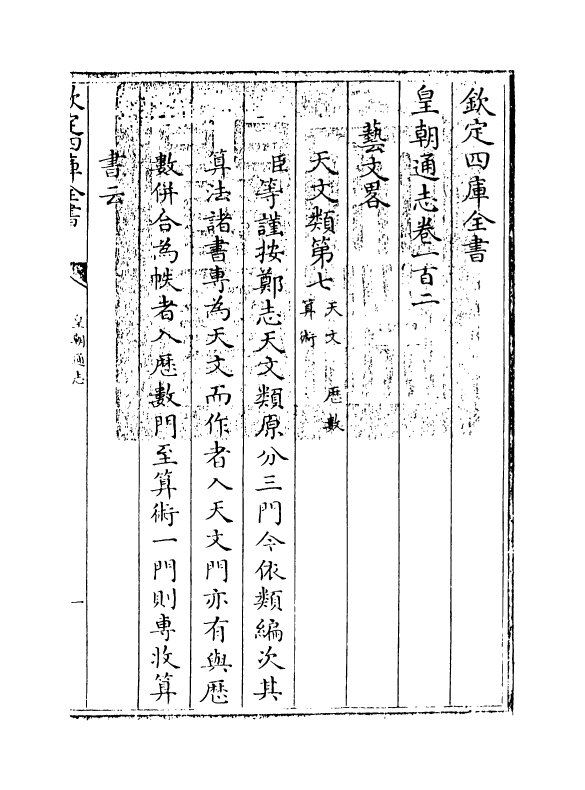 欽定四庫全書
皇朝通志卷一百二
藝文畧
天文類第七天文 厯數 算術
臣等謹按鄭志天文類原分三門今依類編次其
算法諸書專為天文而作者入天文門亦有與厯
數併合為帙者入厯數門至算術一門則專收算
書云
欽定四庫全書
皇朝通志
一